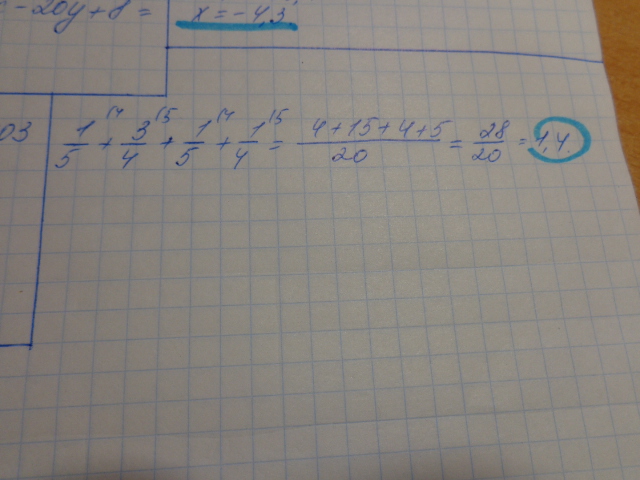 -20y+8=
x=-4,3
03
1/5 + 3/4 + 1/5 + 1/4 = (4+15+4+5)/20 = 28/20 = 1,4.